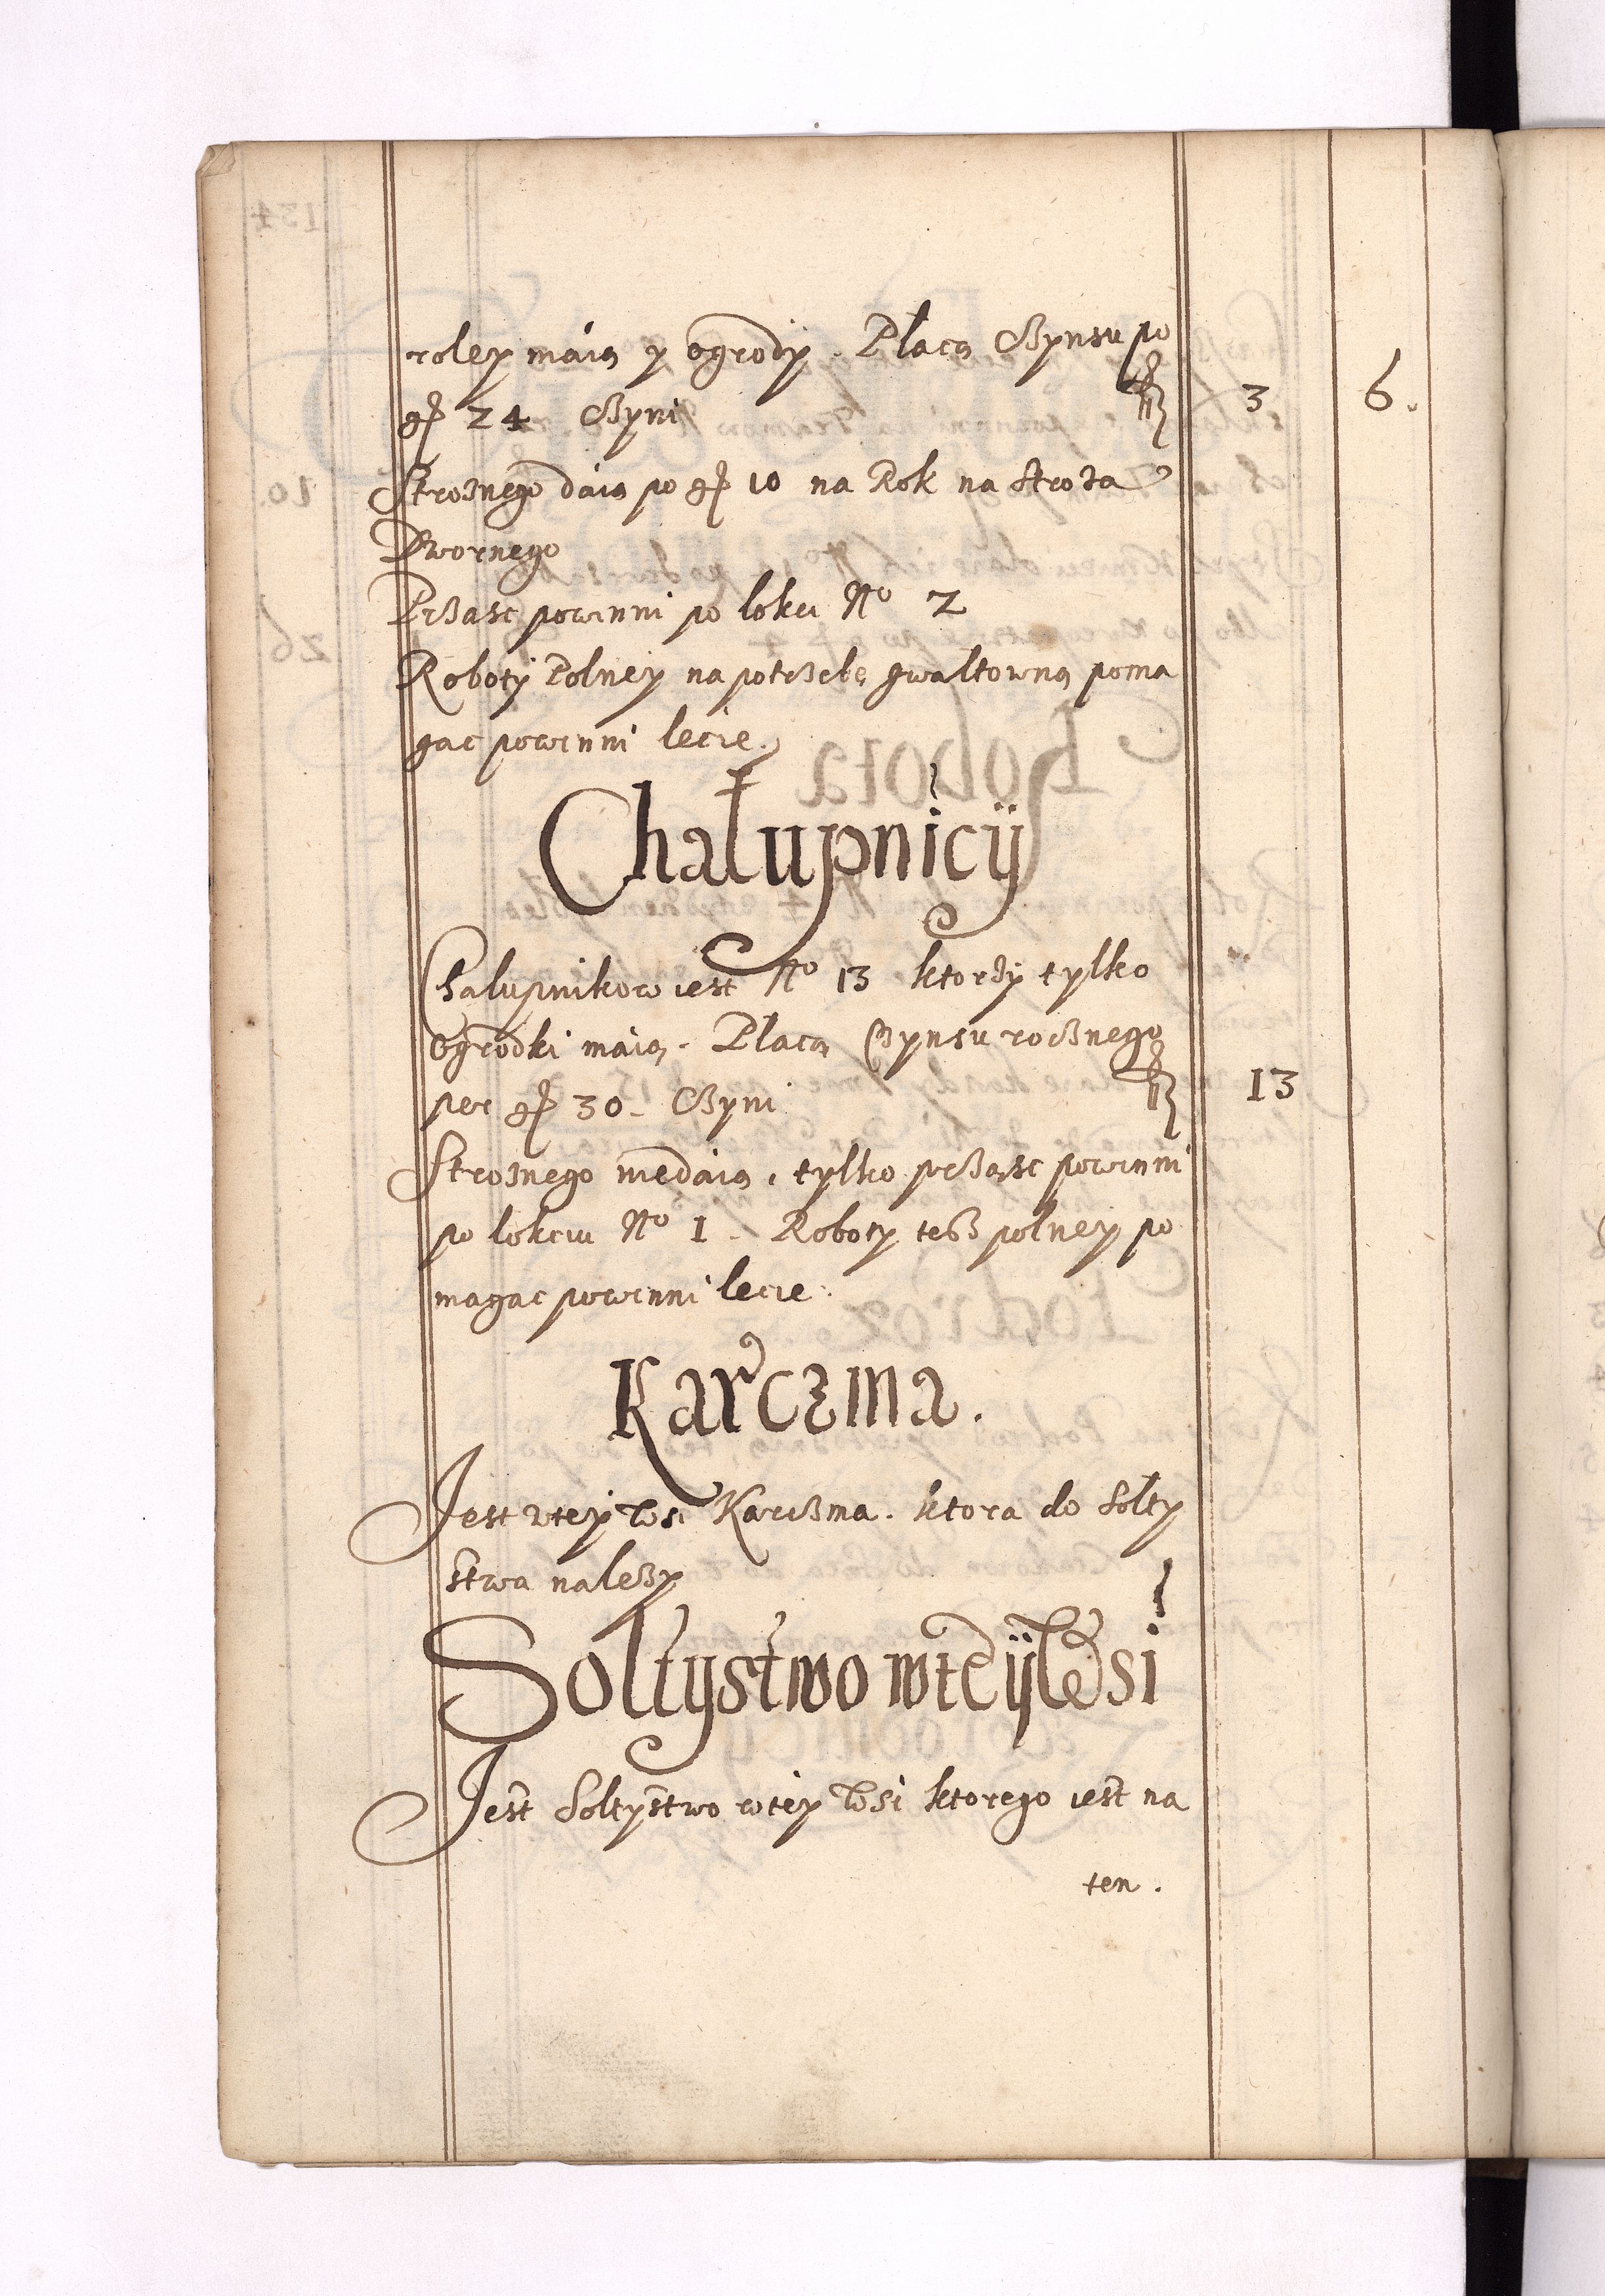 roley maią y ogrody. Płacą Czynsu po
gr 24 Czyni fl 3 6.
Stroznego daią po gr 10 na Rok na stroza
Dwornego
Prząsc powinni po łokci No 2
Roboty Polney na potrzebę gwałtowną poma
gac powinni lecie.
Chałupnicy
Chałupnikow iest No 13 ktorzy tylko
ogrodki maią. Płacą Czynsu rocznego
per gr 30. Czyni fl 13
Stroznego niedaią, tylko prząsc powinni
po łokciu No 1. Roboty tesz polney po
magac powinni lecie.
Karczma.
Jest wtey Wsi Karczma. ktora do Sołty
stwa należy
Sołtystwo wtey Wsi
Jest Sołtystwo wtey Wsi ktorego iest na
ten.